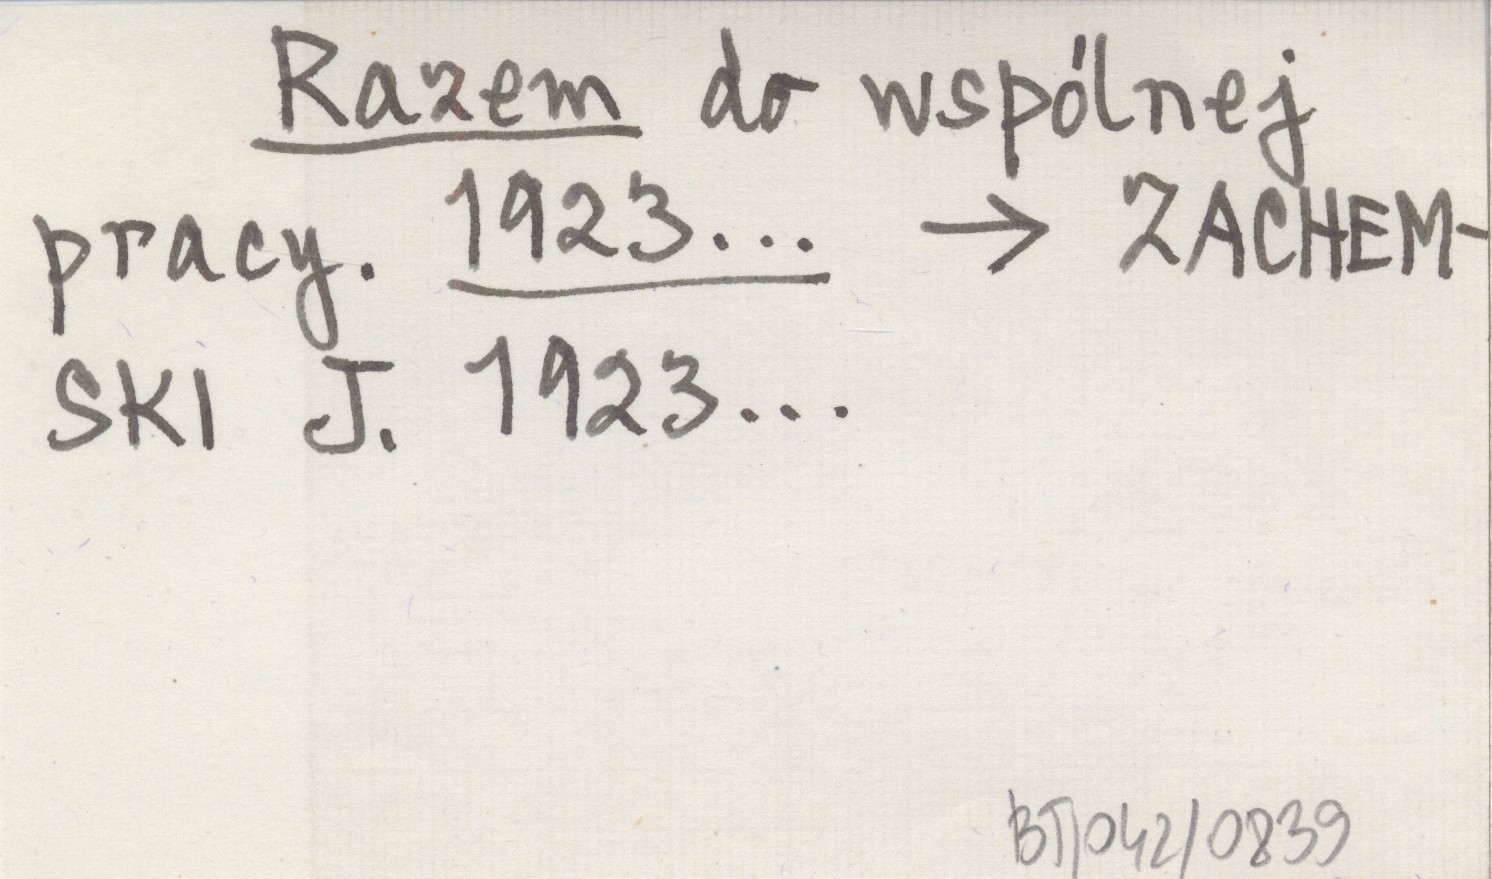 Razem do wspólnej
pracy. 1923... → ZACHEM-
SKI J. 1923...
BT/042/0839